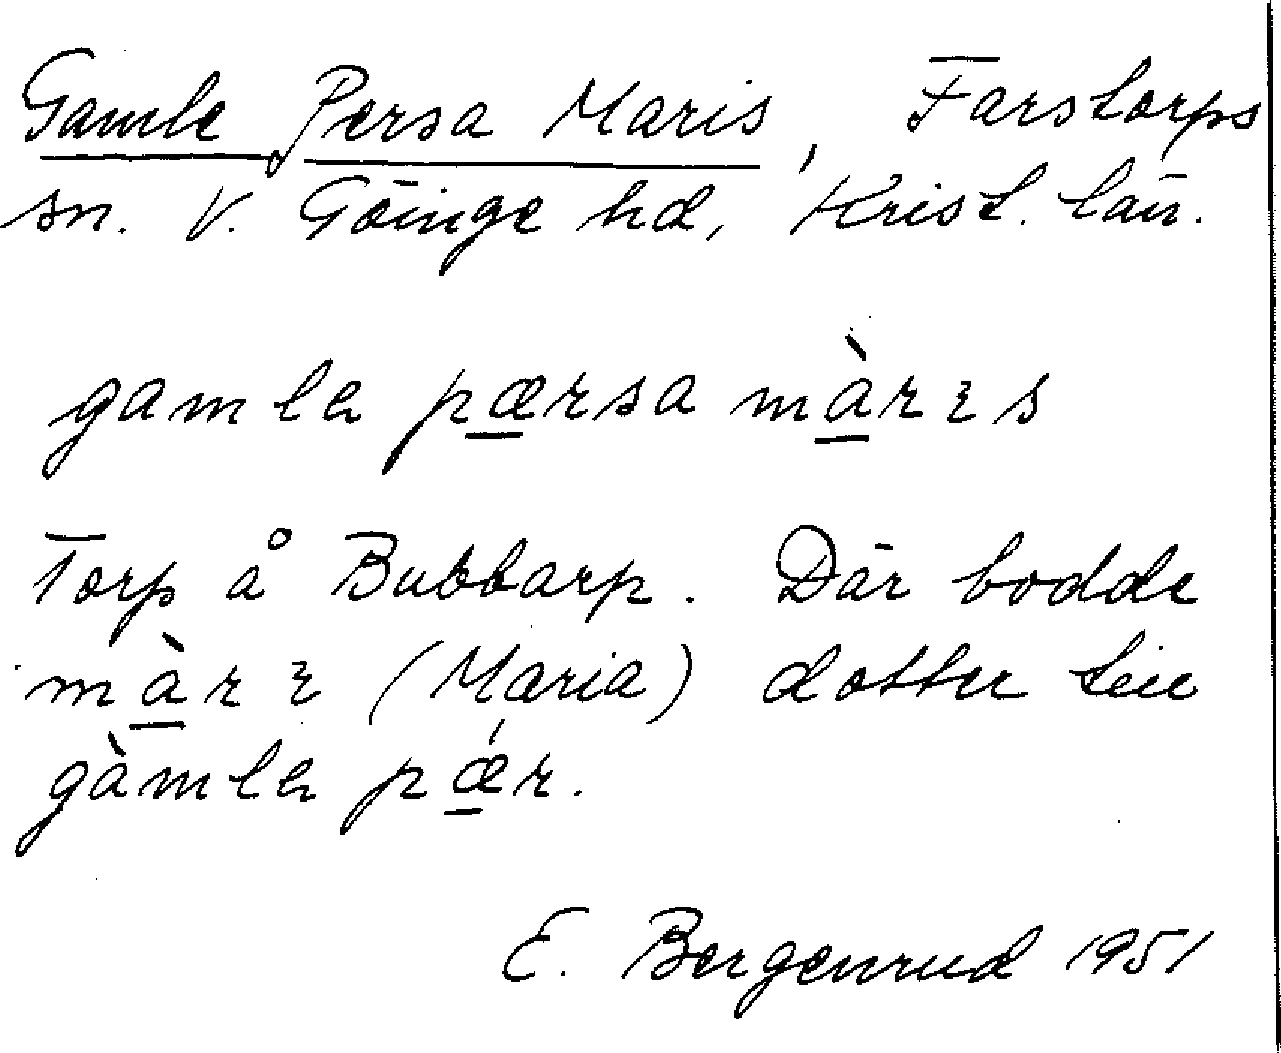 Gamle Persa Maris, Farstorps
sn. V. Göinge hd, Krist. län.
gamlɐ pærsa màrɪs
Torp å Bubbarp. Där bodde
màrɪ (Maria) dotter till
gàmlɐ pǽr.
E. Bergenrud 1951